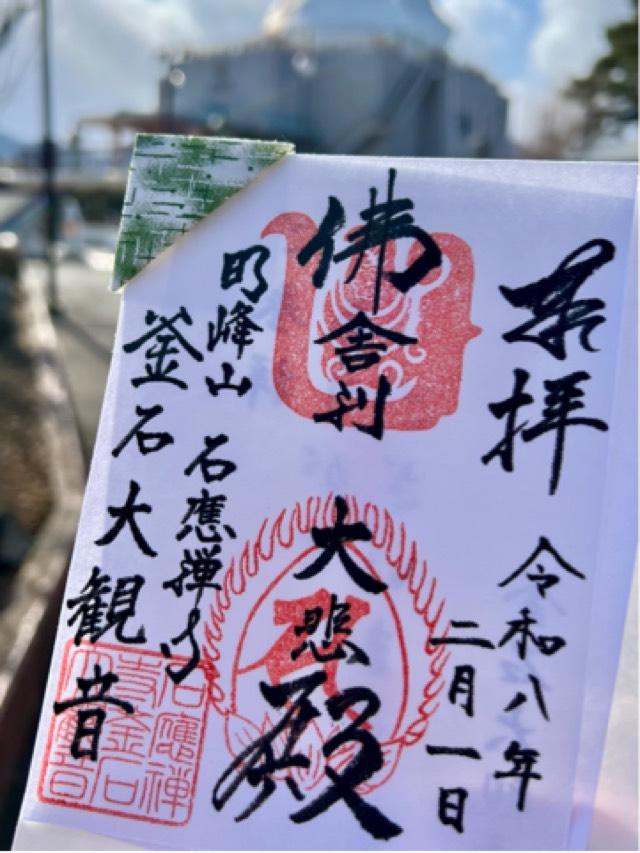 奉拝
令和八年
二月一日
佛舎利
大悲殿
明峰山
石應禅寺
釜石大観音
石應禅
寺釜石
大観音